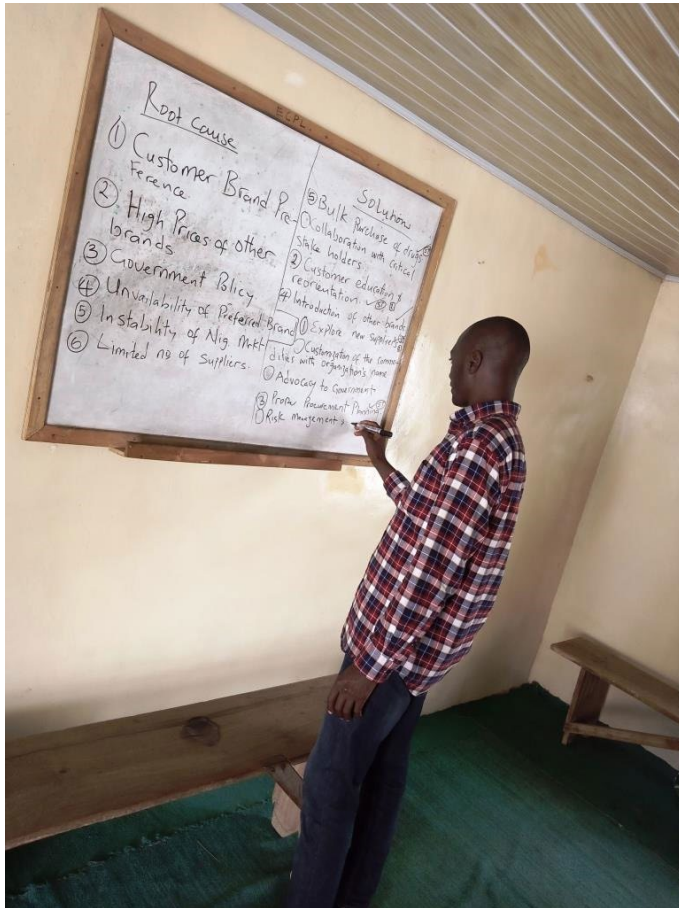 ECPL
Root cause
① Customer Brand Pre-
Ference
② High Prices of other
brands
③ Government Policy
④ Unvailability of Preferred Brand
⑤ Instability of Nig Mrkt
⑥ Limited no of Suppliers.
Solutions
⑤ Bulk Purchase of drugs
Collaboration with critical
stake holders
② Customer education &
reorientation.
④ Introduction of other brands
① Explore new Suppliers
Customization of the commo
dities with organization's name
Advocacy to Government
③ Proper Procurement Planning
Risk Management